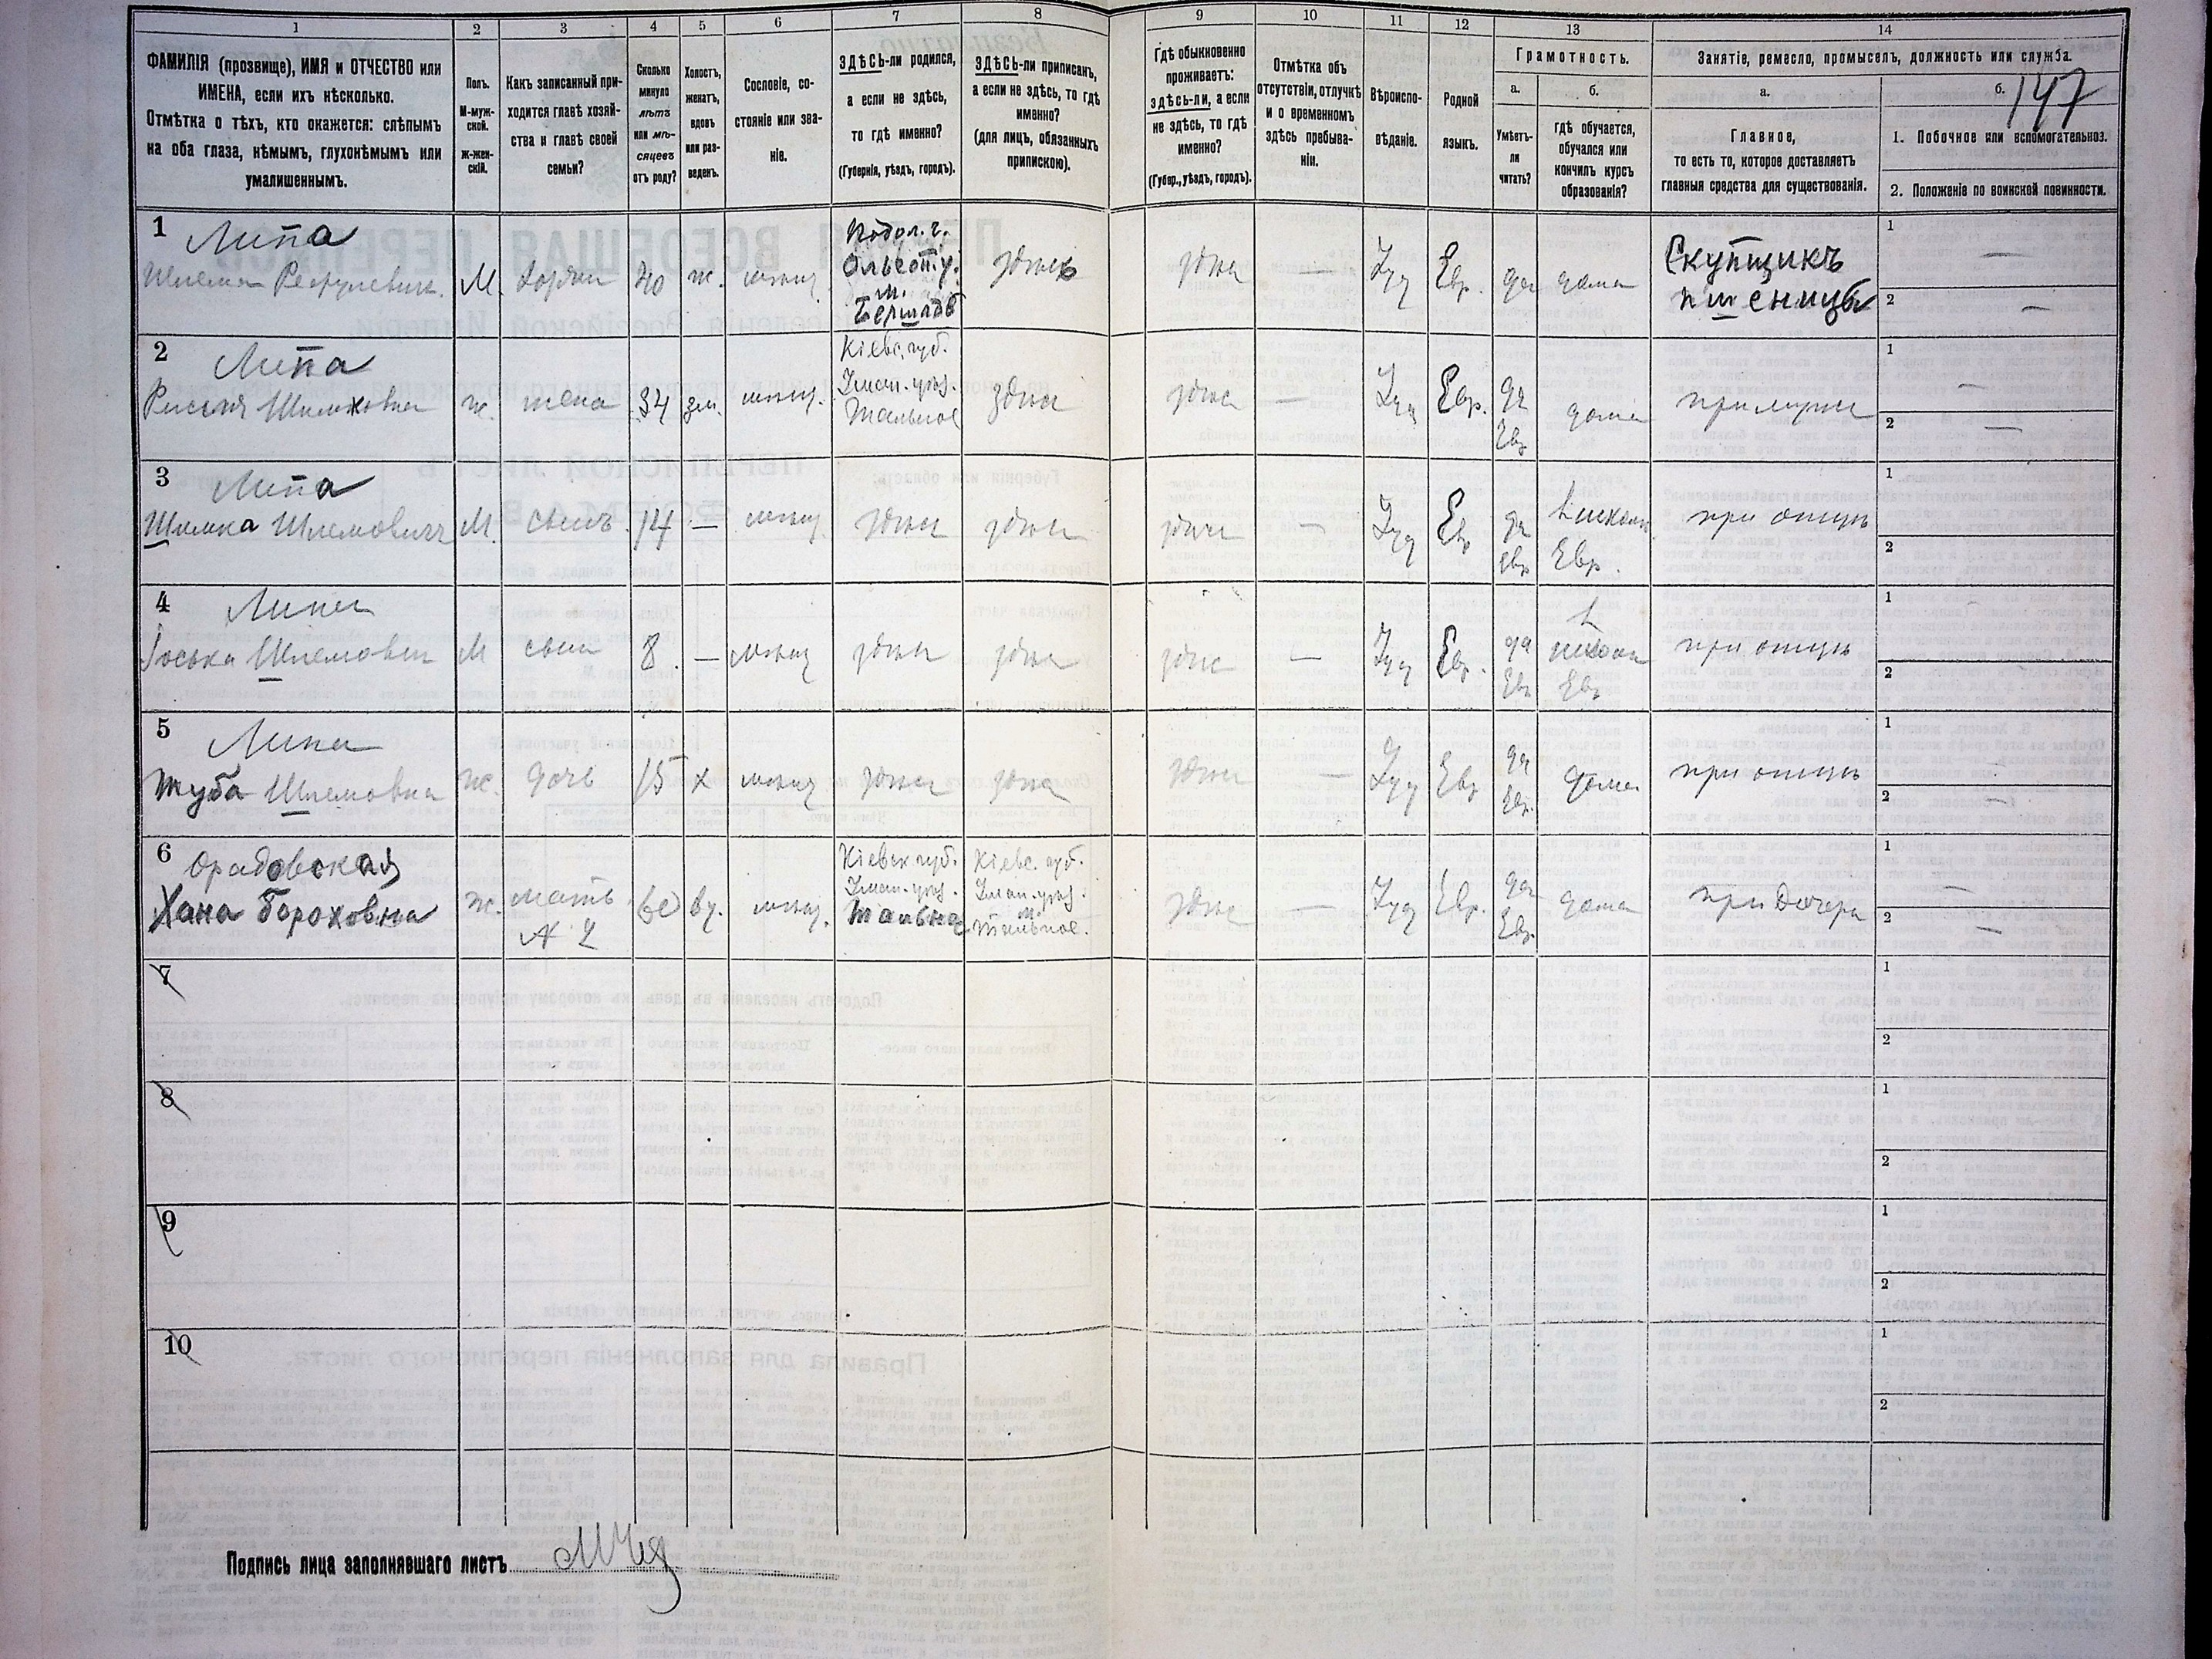 1 2 3 4 5 6 7 8 9 10 11 12 13 14
ФАМИЛІЯ (прозвище), ИМЯ и ОТЧЕСТВО или
ИМЕНА, если ихъ нѣсколько.
Отмѣтка о тѣхъ, кто окажется: слѣпымъ
на оба глаза, нѣмымъ, глухонѣмымъ или
умалишеннымъ.
Полъ.
М-муж-
ской.
Ж-жен-
скій.
Какъ записанный при-
ходится главѣ хозяй-
ства и главѣ своей
семьи?
Сколько
минуло
лѣтъ
или мѣ-
сяцевъ
отъ роду?
Холостъ,
женатъ,
вдовъ
или раз-
веденъ.
Сословіе, со-
стояніе или зва-
ніе.
ЗДѢСЬ-ли родился,
а если не здѣсь,
то гдѣ именно?
(Губернія, уѣздъ, городъ).
ЗДѢСЬ-ли приписанъ,
а если не здѣсь, то гдѣ
именно?
(для лицъ, обязанныхъ
припискою).
Гдѣ обыкновенно
проживаетъ:
здѣсь-ли, а если
не здѣсь, то гдѣ
именно?
(Губер., уѣздъ, городъ).
Отмѣтка объ
отсутствіи, отлучкѣ
и о временномъ
здѣсь пребыва-
ніи.
Вѣроиспо-
вѣданіе.
Родной
языкъ.
Грамотность.
а.
Умѣетъ-
ли
читать?
б.
Гдѣ обучается,
обучался или
кончилъ курсъ
образованія?
Занятіе, ремесло, промыселъ, должность или служба.
а.
Главное,
то есть то, которое доставляетъ
главныя средства для существованія.
б.
147
1. Побочное или вспомогательное.
2. Положеніе по воинской повинности.
1
Липа
М.
40
ж.
Подол. г.
Ольгоп. у.
м.
Бершадь
здѣсь
—
Іуд
Евр.
да
дома
Скупщикъ
пшеницы
1 —
2 —
2
Липа
ж.
жена
34
зм.
Кіевс. губ.
Уман. уѣз.
Тальное
здѣсь
здѣсь
—
Іуд
Евр.
да
Евр
дома
при мужѣ
1 —
2 —
3
Липа
Шимка Шлемовичъ
М.
сынъ
14
—
здѣсь
здѣсь
здѣсь
—
Іуд
Евр
да
Евр
Евр.
при отцѣ
1
2
4
Липа
Іоська Шлемович
М
сын
8.
—
здѣсь
здѣсь
здѣсь
—
Іуд
Евр.
да
Евр
Евр
при отцѣ
1
2
5
Липа
Туба Шлемовна
ж.
дочь
15
х
здѣсь
здѣсь
здѣсь
—
Іуд
Евр
да
Евр.
дома
при отцѣ
1 —
2 —
6
Орадовская
Хана Бороховна
ж.
мать
№ 2
60
ву.
Кіевск губ.
Уман. уѣз.
Тальна
Кіевс. губ.
Уман. уѣз.
м.
Тальное.
здѣсь
—
Іуд
Евр.
да
Евр.
дома
при дочери
1 —
2 —
7
1
2
8
1
2
9
1
2
10
1
2
Подпись лица заполнявшаго листъ